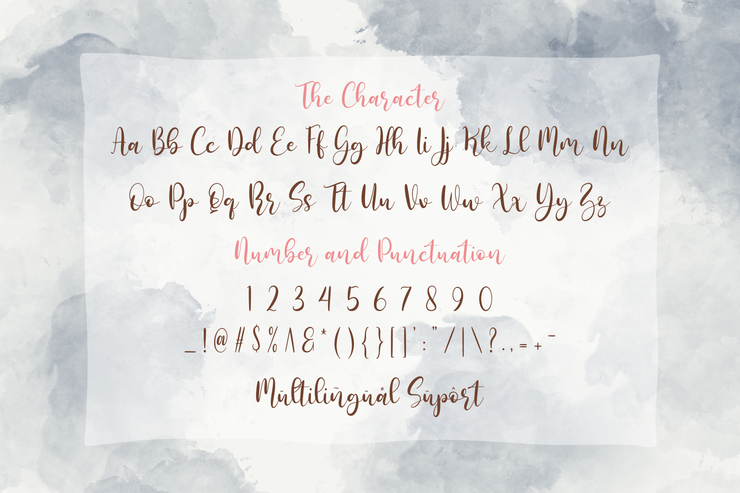 The Character
Aa Bb Cc Dd Ee Ff Gg Hh Ii Jj Kk Ll Mm Nn
Oo Pp Qq Rr Ss Tt Uu Vv Ww Xx Yy Zz
Number and Punctuation
1 2 3 4 5 6 7 8 9 0
_!@#$%^&*(){}[]':"/|\?.,=+-
Mūltiliñgūāl Sūpôrt